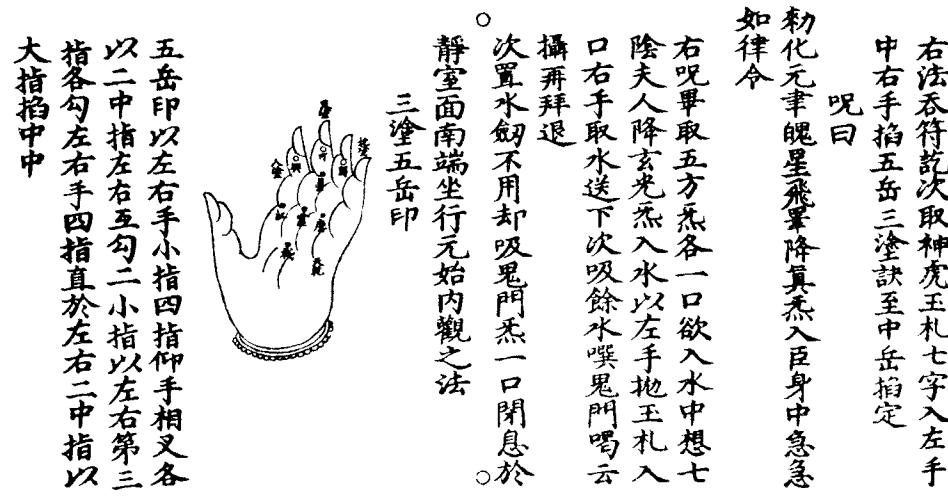 右法吞符訖次取神虎玉札七字入左手
中右手掐五岳三塗訣至中岳掐定
呪曰
勑化元聿魄星飛畢降眞炁入臣身中急急
如律令
右呪畢取五方炁各一口欲入水中想七
陰夫人降玄光炁入水以左手抛玉札入
口右手取水送下次吸餘水噀鬼門喝云
攝再拜退
次置水劒不用却吸鬼門炁一口閉息於
靜室面南端坐行元始内觀之法
三塗五岳印
五岳印以左右手小指四指仰手相叉各
以二中指左右互勾二小指以左右第三
指各勾左右手四指直於左右二中指以
大指掐中中